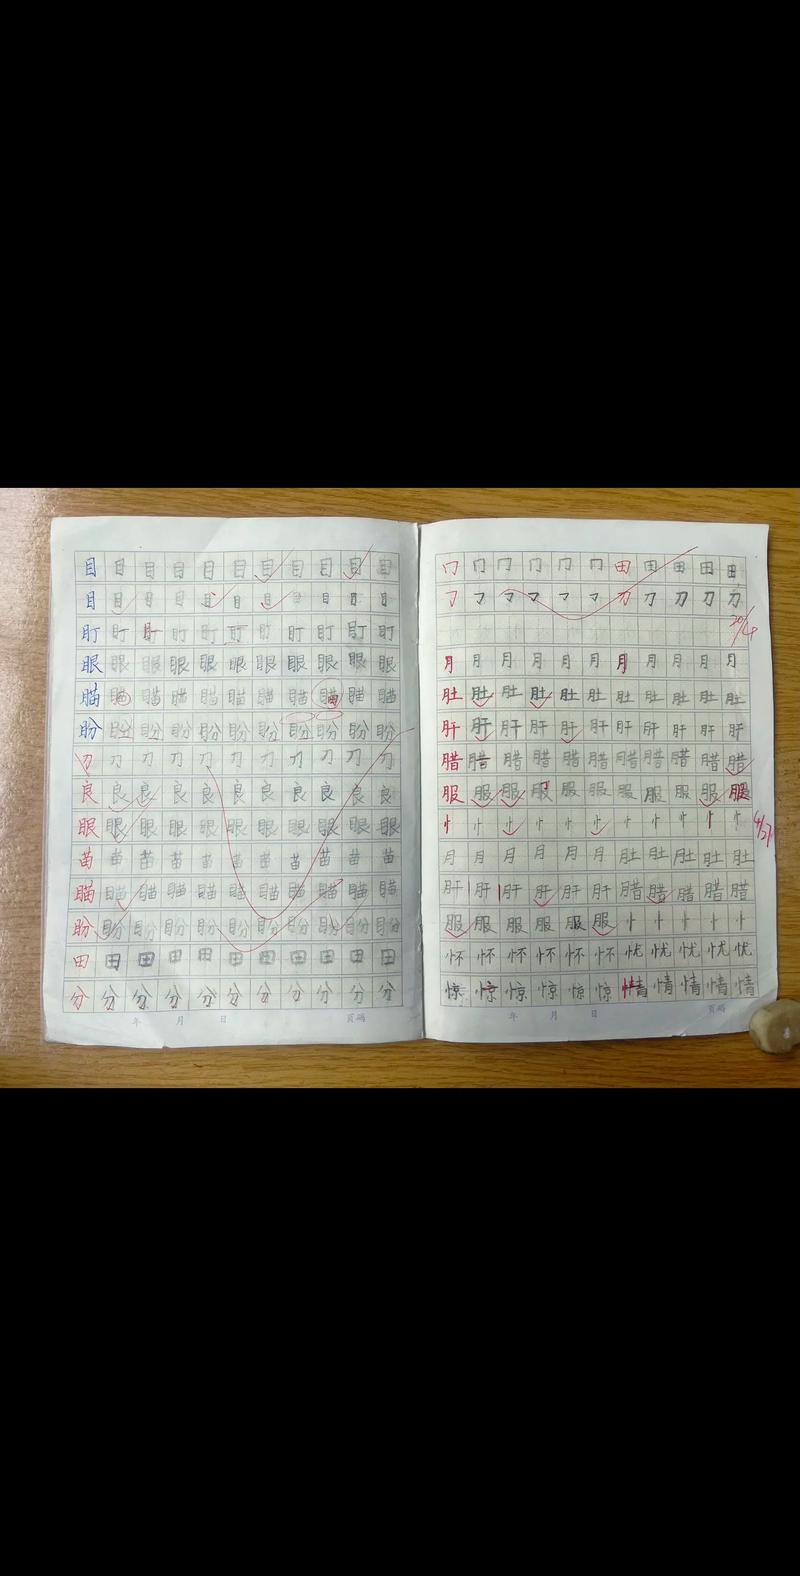 目目目目目目目目目目目
目目目目目目目目目目目
盯盯盯盯盯盯盯盯盯盯盯
眼眼眼眼眼眼眼眼眼眼眼
瞄瞄瞄瞄瞄瞄瞄瞄瞄瞄瞄
盼盼盼盼盼盼盼盼盼盼盼
刀刀刀刀刀刀刀刀刀刀刀
良良良良良良良良良良良
眼眼眼眼眼眼眼眼眼眼眼
苗苗苗苗苗苗苗苗苗苗苗
瞄瞄瞄瞄瞄瞄瞄瞄瞄瞄瞄
盼盼盼盼盼盼盼盼盼盼盼
田田田田田田田田田田田
分分分分分分分分分分分
年 月 日 頁碼
冂冂冂冂冂冂田田田田田
刀刀刀刀刀
20/4
月月月月月月月月月月月
肚肚肚肚肚肚肚肚肚肚肚
肝肝肝肝肝肝肝肝肝肝肝
腊腊腊腊腊腊腊腊腊腊腊
服服服服服服服服服服服
忄忄忄忄忄忄忄忄忄忄忄
4/27
月月月月月月肚肚肚肚肚
肝肝肝肝肝肝腊腊腊腊腊
服服服服服服忄忄忄忄忄
怀怀怀怀怀怀忧忧忧忧忧
惊惊惊惊惊惊情情情情情
年 月 日 頁碼